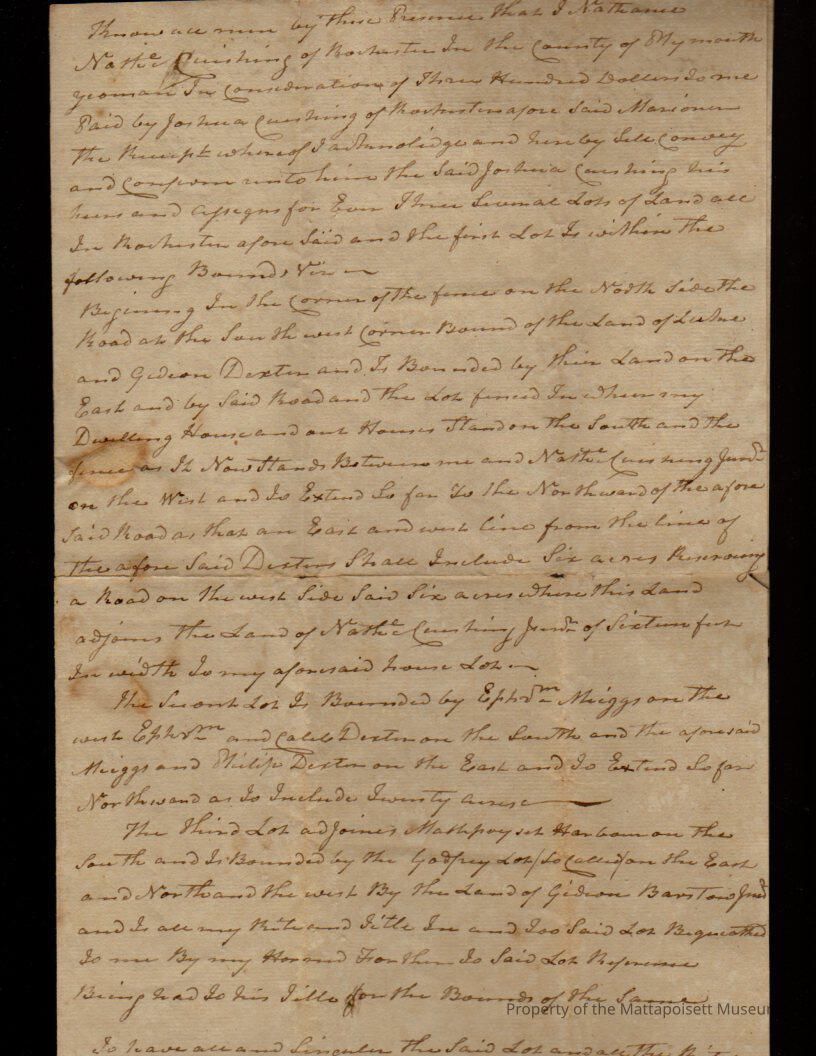 Know all men by these Presence that I Nathaniel
Nath.ll Cushing of Rochester In the County of Plymouth
yeoman In Consideration of Three Hundred Dollers to me
Paid by Joshua Cushing of Rochester afore Said Marioner
the Recept whereof I acknolidge and hereby Sele Convey
and Confirm unto him the Said Joshua Cushing his
heirs and assegns for Ever Three Several Lots of Land all
In Rochester afore Said and the first Lot Is within the
following Bounds Viz
Begining In the Corner of the fence on the North Side the
Road at the South west Corner Bound of the Land of
and Gideon Dexter and Is Bounded by their Land on the
East and by Said Road and the Lot fenced In where my
Dwelling House and out Houses Stand on the South and the
fence as It Now Stands Between me and Nath.ll Cushing Junr
on the West and To Extend So far To the Northward of the afore
Said Road as that an East and west line from the line of
the afore Said Dexters Shall Include Six acres Reserving
a Road on the west Side Said Six acres where this Land
adjoins the Land of Nath.ll Cushing Junr of Sixteen feet
In width To my aforesaid house Lot
The Second Lot Is Bounded by Ephrm Meiggs on the
west Ephrm and Caleb Dexter on the South and the aforesaid
Meiggs and Philip Dexter on the East and To Extend So far
Northward as To Include Twenty acres
The Third Lot adjoines Mattpoyset Harbour on the
South and Is Bounded by the Godfrey Lot (So Called) on the East
and North and the west By the Land of Gideon Barstow Junr
and Is all my Rite and Title In and Too Said Lot Bequeathed
To me By my Honred Farther To Said Lot Reference
Being had To his Title for the Bounds of the Same
Property of the Mattapoisett Museum
To have all and Singuler the Said Lot and all the